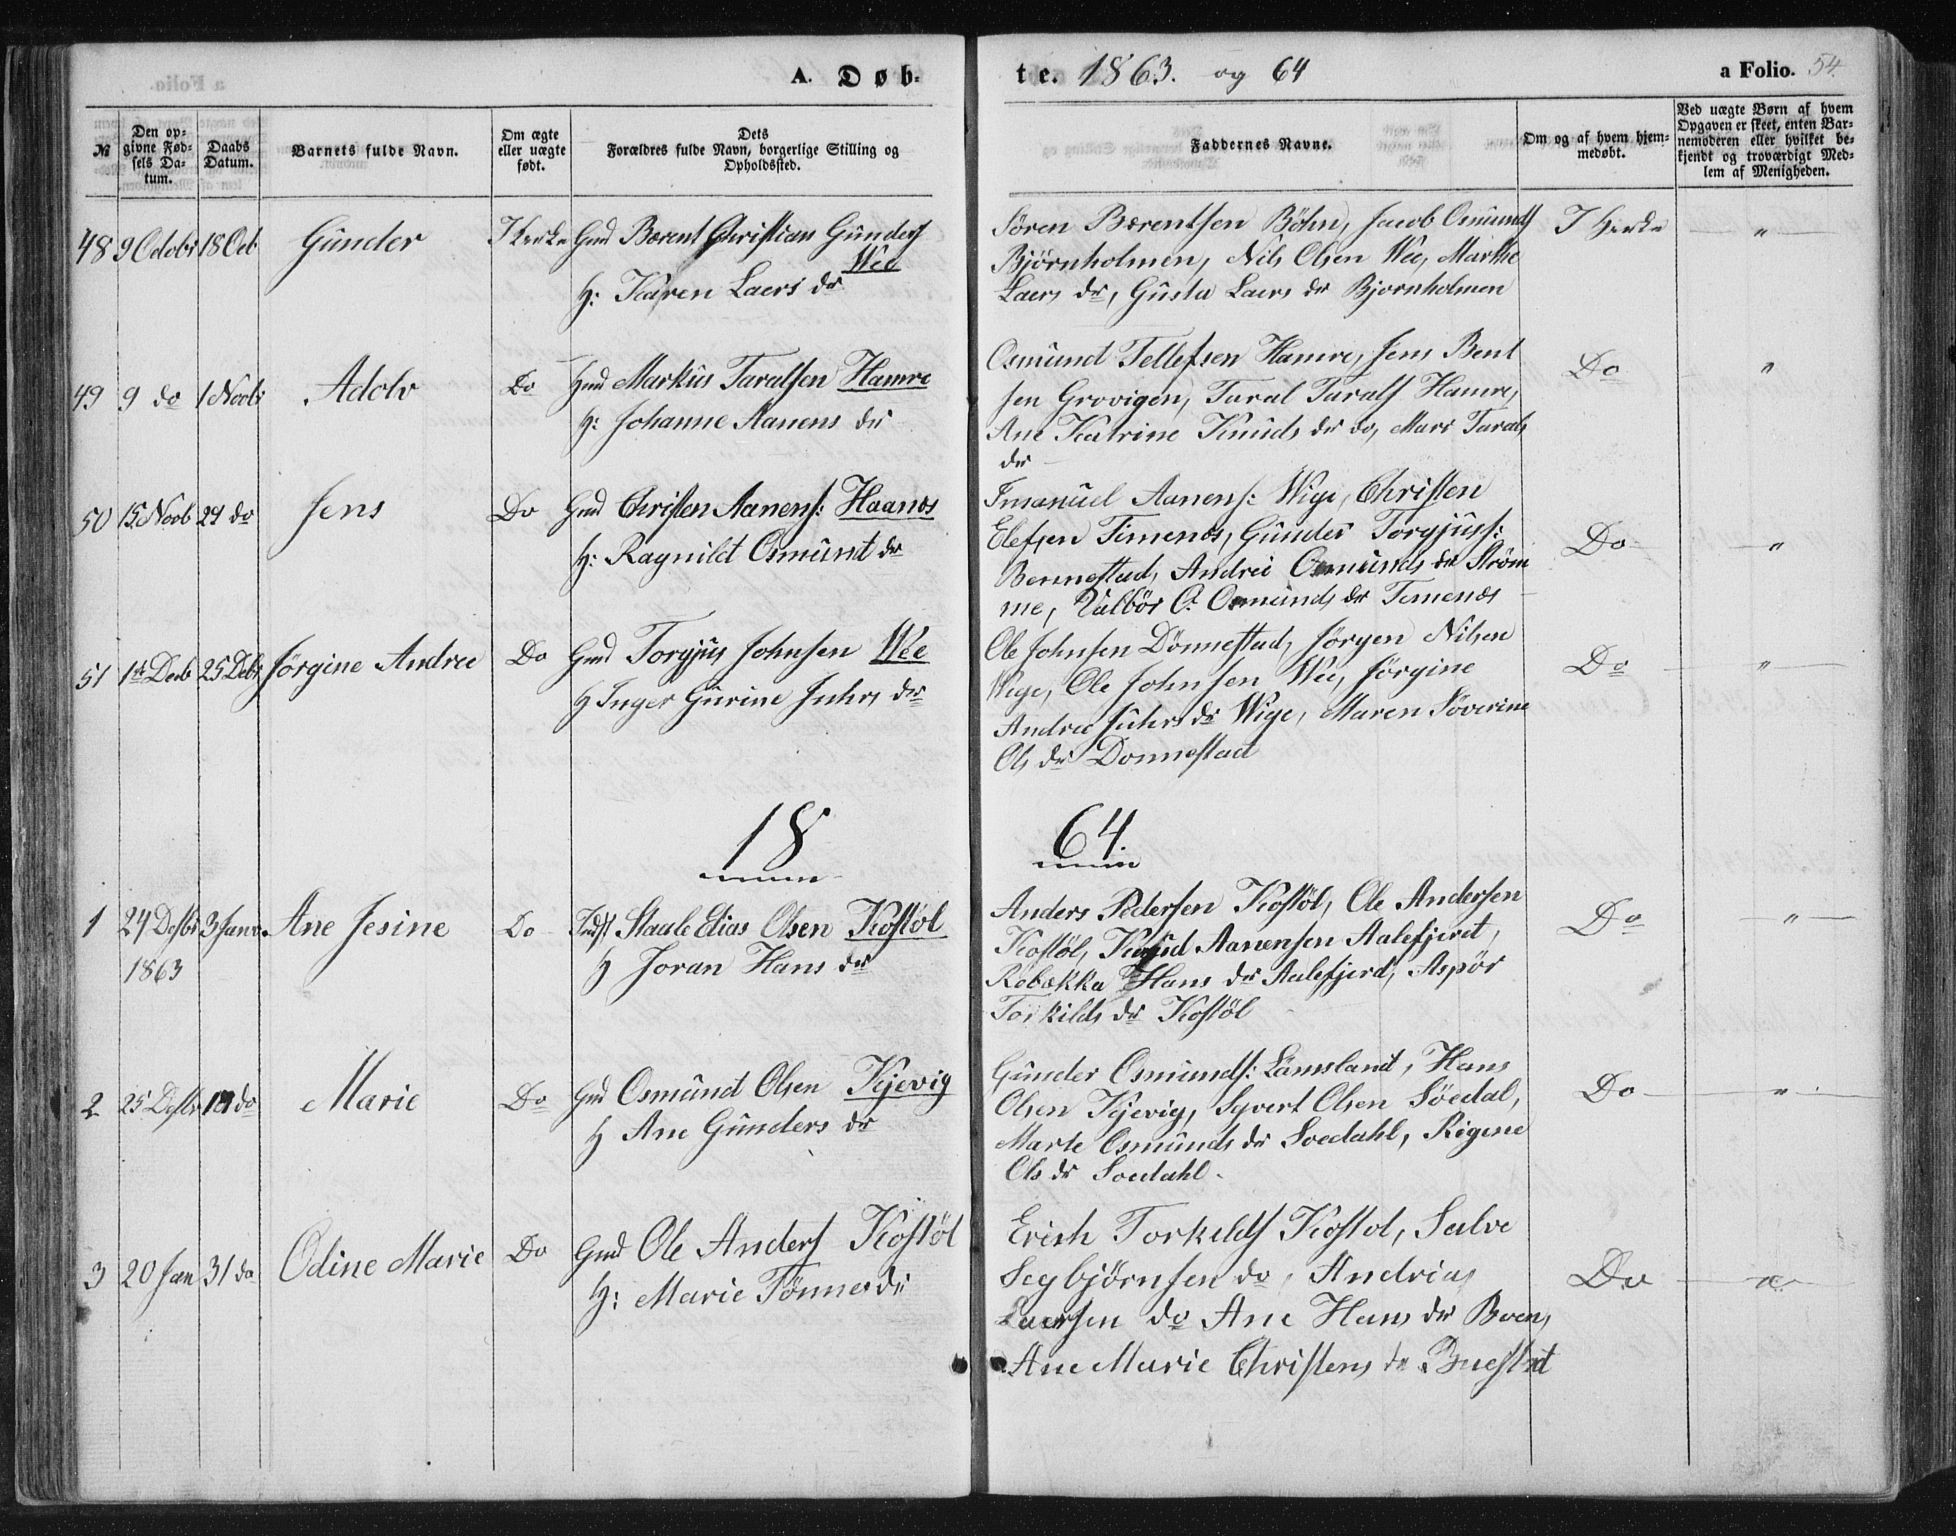 A. Døb-
te. 1863. og 64
a Folio. 54.
№
Den op-
givne Fød-
sels Da-
tum.
Daabs
Datum.
Barnets fulde Navn.
Om ægte
eller uægte
født.
Dets
Forældres fulde Navn, borgerlige Stilling og
Opholdssted.
Faddernes Navne.
Om og af hvem hjem-
medøbt.
Ved uægte Børn af hvem
Opgaven er skeet, enten Bar-
nemoderen eller hvilket be-
kjendt og troværdigt Med-
lem af Menigheden.
48 9 Octobr 18 Oct Gunder Gmd Bærent Christian Gunders
Wee
H: Karen Laers dr
Søren Bærentsen Böhn, Jacob Osmunds
Bjørnholmen, Nils Olsen Wee, Marthe
Laers dr, Gusta Laers dr Bjørnholmen
"
49 9 do 1 Novbr Adolv Do Gmd Markus Taralsen Hamre
H: Johanne Aanens dr
Osmund Tellefsen Hamre, Jens Bent
sen Grovigen, Taral Tarals Hamre,
Ane Katrine Knuds dr do, Mari Tarals
dr
Do "
50 15 Novb 29 do Jens Do Gmd Christen Aanens: Haanes
H: Ragnild Osmunt dr
Imanuel Aanens: Wige, Christen
Elefsen Timenes, Gunder Torgjus:
Bennestad, Andrei Osmunds dr Strøm
me, Valbør O. Osmunds dr Temenes
Do "
51 1te Decb 25 Debr Jørgine Andree Do Gmd Torgjus Johnsen Wee
H Inger Gurine Juhrs dr
Ole Johnsen Dönnestad, Jörgen Nilsen
Wige, Ole Johnsen Wee, Jörgine
Andree Juhrs dr Wige, Maren Söverine
Ols dr Donnestad
Do "
18 64.
1 24 Desbr 3 Janr. Ane Jesine Do Indst Staale Elias Olsen Kostøl
1863
H Joran Hans dr
Anders Pedersen Kostöl, Ole Andersen
Kostöl, Knud Aanensen Aalefjeret,
Rebekka Hans dr Aalefjerd, Aspör
Torkilds dr Kostöl
Do "
2 25 Desbr 10 do Marie Do Gmd Osmund Olsen Kjevig
H Ane Gunders dr
Gunder Osmunds: Lamsland, Hans
Olsen Kjevig, Syvert Olsen Söedal,
Marte Osmunds dr Soedahl, Rigine
Ols dr Soedahl.
Do "
3 20 Jan 31 do Odine Marie Do Gmd Ole Anders Kostöl
H: Marie Tönnes dr
Erich Torkilds Kostol, Salve
Segbjörnsen do, Andrias
Laersen do Ane Hans dr Boen,
Ane Marie Christens dr Buestat
Do "